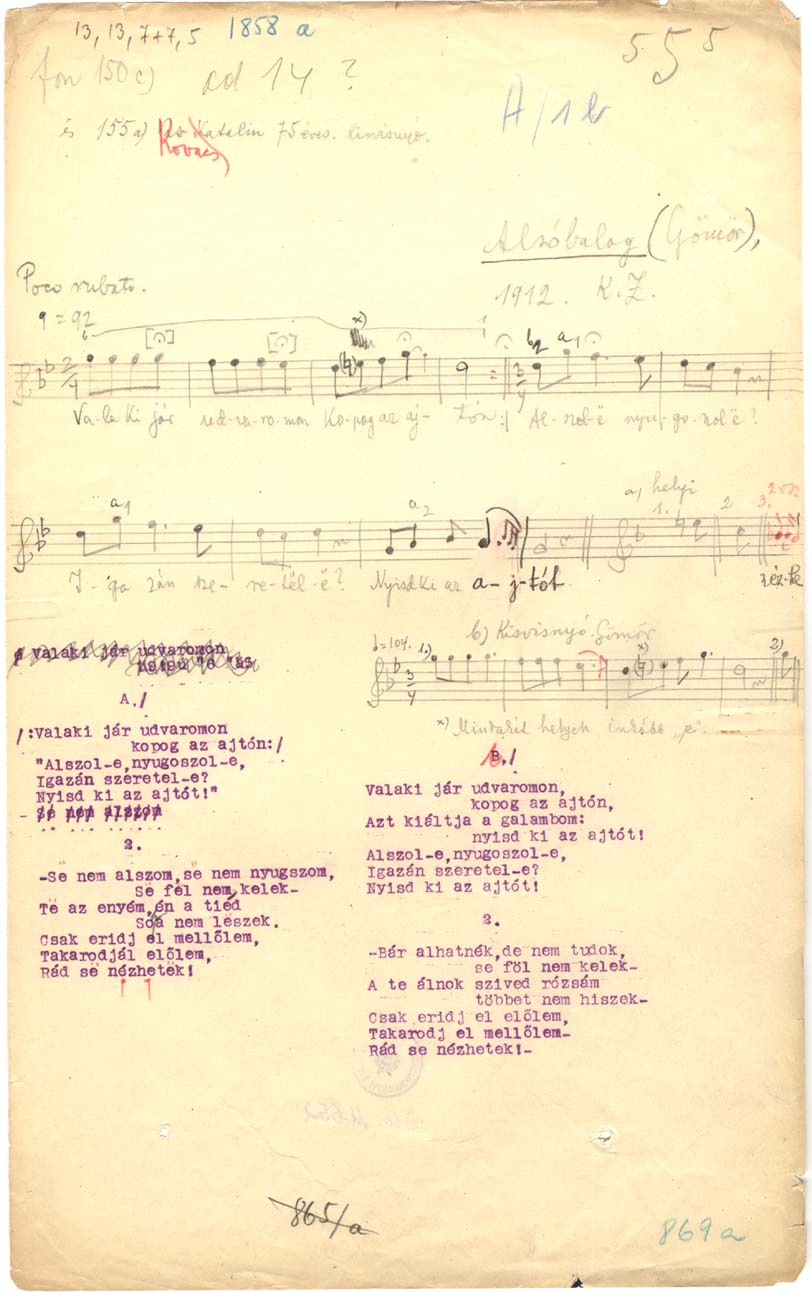 13, 13, 7+7, 5 1858 a
5 5 5
fon 150 c) ad 14 ?
A/1 b
és 155 a) Katalin 75 éves. Kisvisnyó.
Kovács
Alsóbalog (Gömör),
1912. K. Z.
Poco rubato.
= 92
x) 1
2/4 3/4 a1
Va-la-ki jár ud-va-ro-mon Ko-pog az aj- tón :/ Al- szol-ë nyu- go- szol-ë?
a1 a2 a, helyi 1. 2 3.
I- ga zán sze- re- tël- ë? Nyisd ki az a- j- tót néz-he
b) Kisvisnyó. Gömör
= 104. 1.) x) 2)
3/4
x) Mindezek helyett inkább „e".
Valaki jár udvaromon
A./
/:Valaki jár udvaromon
kopog az ajtón:/
"Alszol-e,nyugoszol-e,
Igazán szeretel-e?
Nyisd ki az ajtót!"
- Së nem alszom
2.
-Së nem alszom,së nem nyugszom,
Së fël nem kelek-
Të az enyém,én a tiéd
Soja nem lëszek.
Csak eridj el mellőlem,
Takarodjál előlem,
Rád së nézhetëk!
B./
Valaki jár udvaromon,
kopog az ajtón,
Azt kiáltja a galambom:
nyisd ki az ajtót!
Alszol-e,nyugoszol-e,
Igazán szeretel-e?
Nyisd ki az ajtót!
2.
-Bár alhatnék,de nem tudok,
se föl nem kelek-
A te álnok szived rózsám
többet nem hiszek-
Csak eridj el előlem,
Takarodj el mellőlem-
Rád se nézhetek!-
865/a
869 a